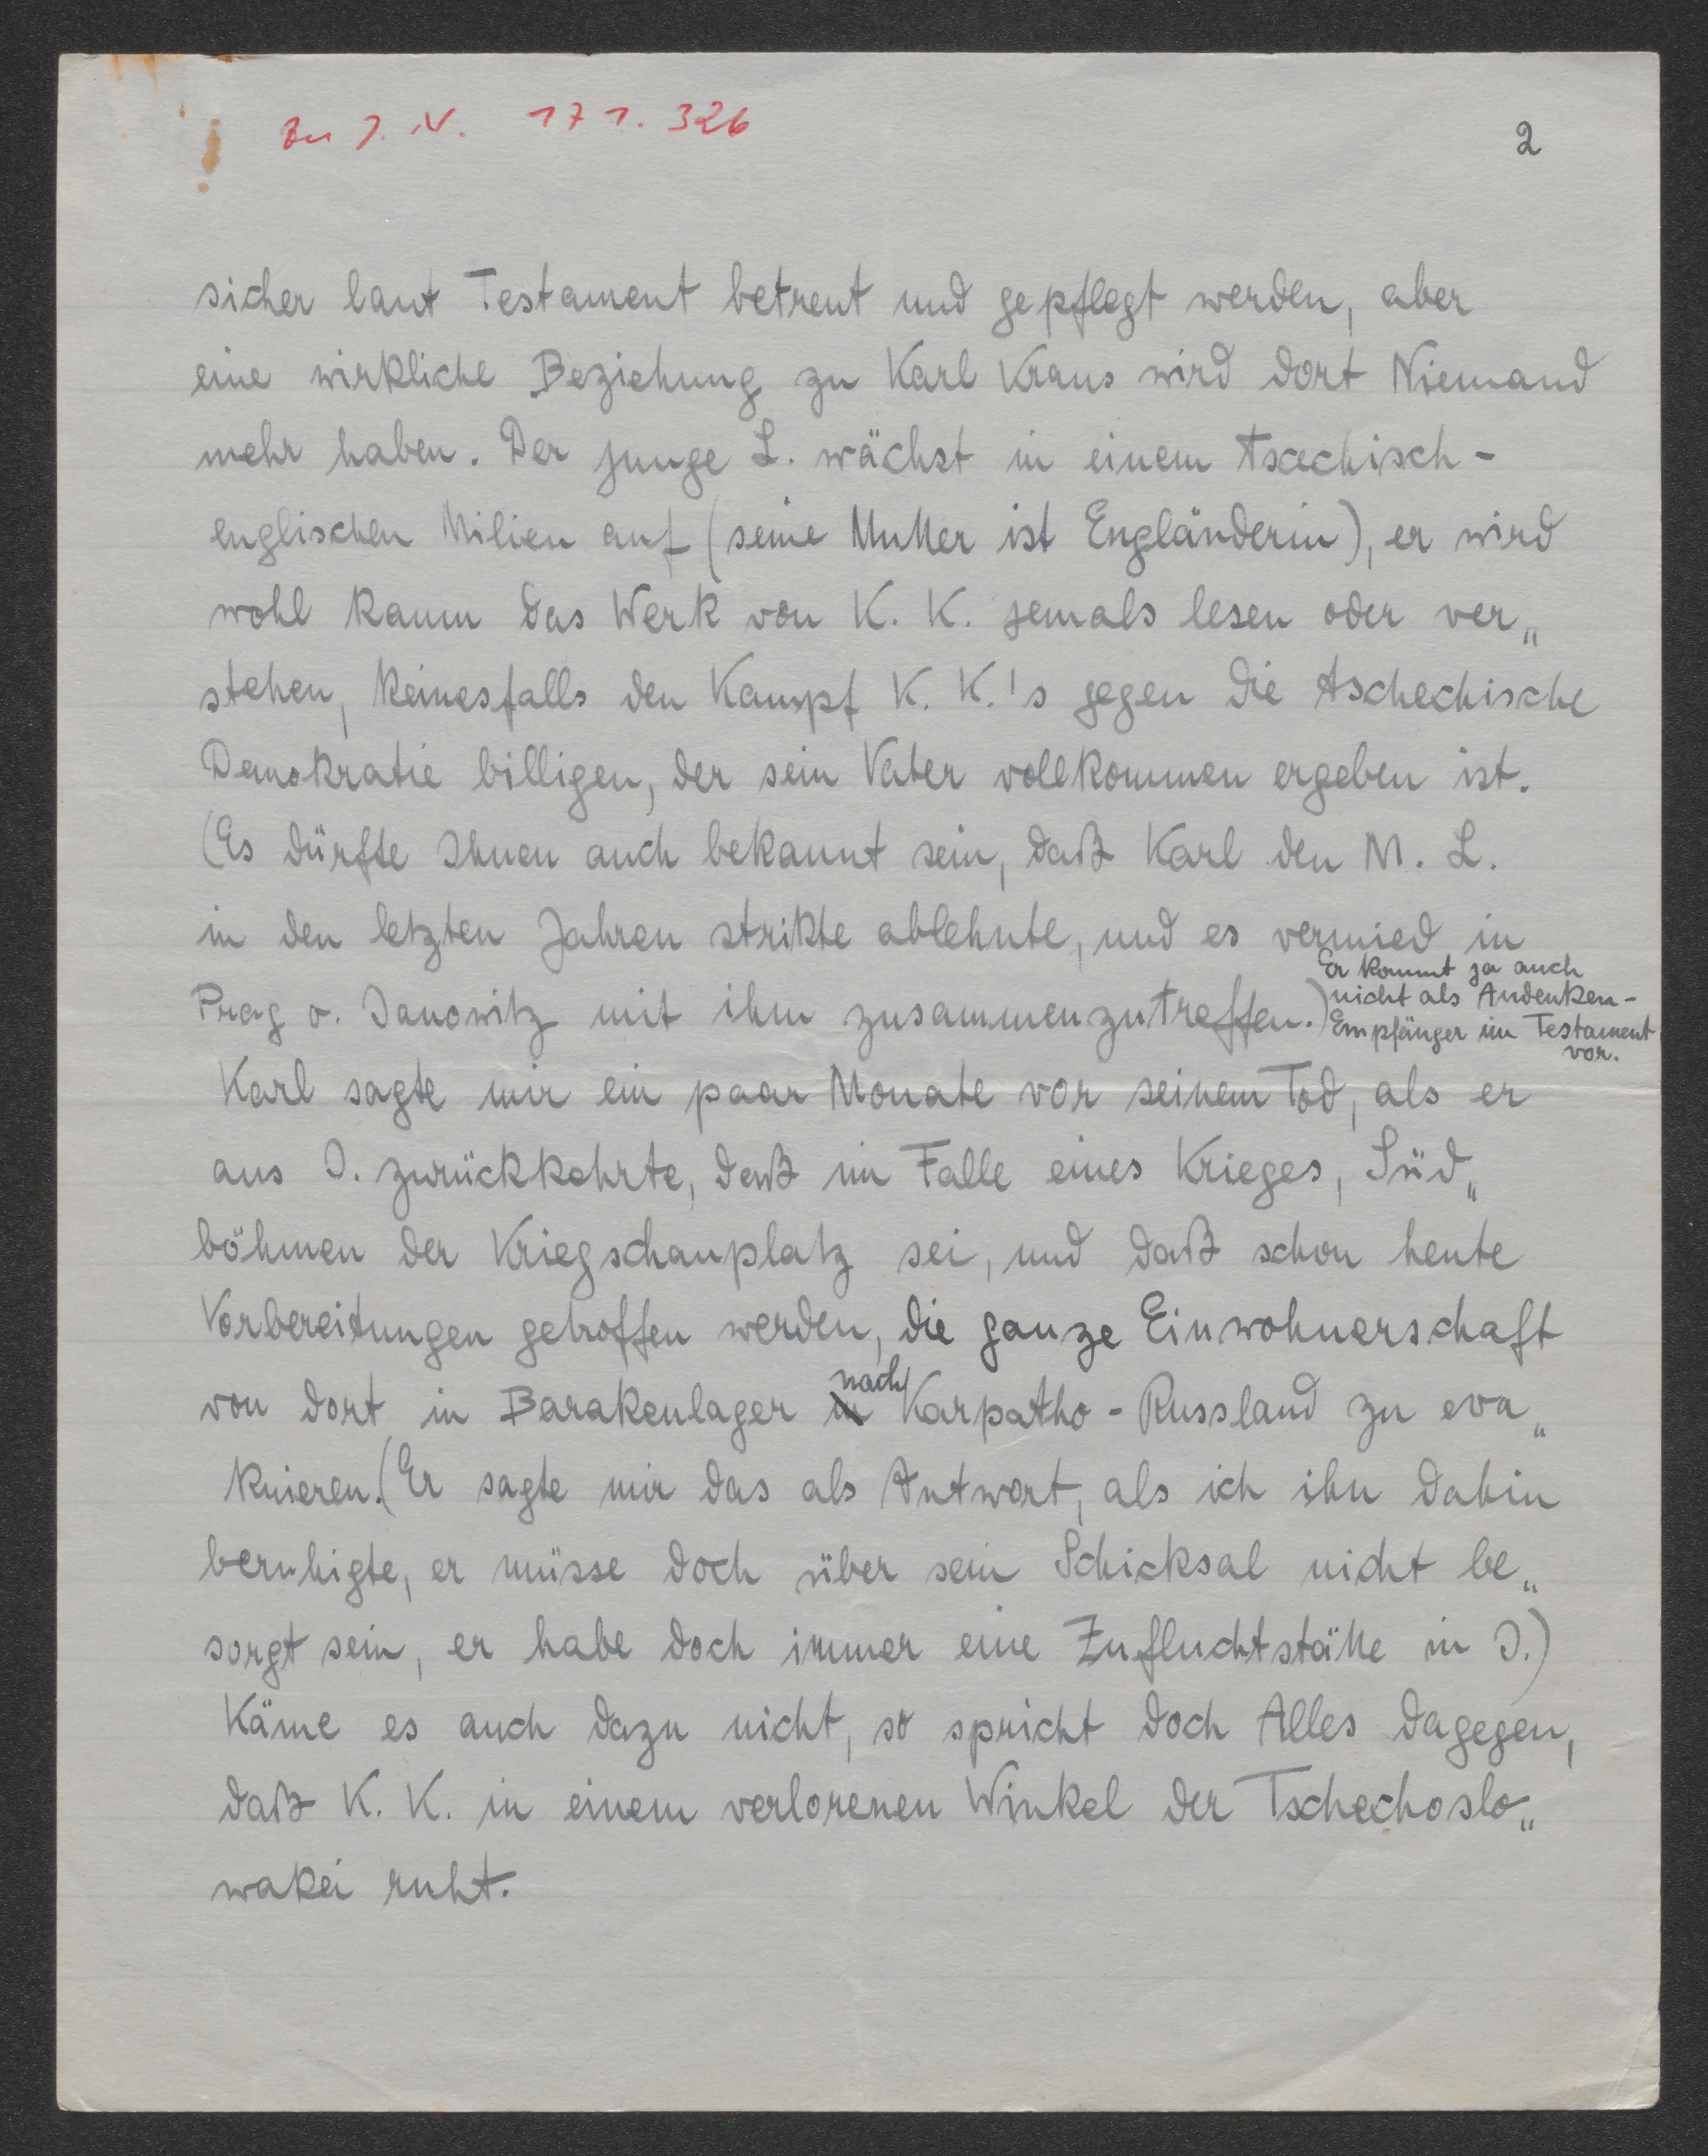 Zu J. N. 171.326
2
sicher laut Testament betreut und gepflegt werden, aber
eine wirkliche Beziehung zu Karl Kraus wird dort Niemand
mehr haben. Der junge L. wächst in einem tscechisch-
englischen Milieu auf (seine Mutter ist Engländerin), er wird
wohl kaum das Werk von K. K. jemals lesen oder ver„
stehen, keinesfalls den Kampf K. K.'s gegen die tschechische
Demokratie billigen, der sein Vater vollkommen ergeben ist.
(Es dürfte Ihnen auch bekannt sein, daß Karl den M. L.
in den letzten Jahren strikte ablehnte, und es vermied in
Prag o. Janowitz mit ihm zusammenzutreffen.)
Er kommt ja auch
nicht als Andenken-
Empfänger im Testament
vor.
Karl sagte mir ein paar Monate vor seinem Tod, als er
aus J. zurückkehrte, daß im Falle eines Krieges, Süd„
böhmen der Kriegschauplatz sei, und daß schon heute
Vorbereitungen getroffen werden, die ganze Einwohnerschaft
von dort in Barakenlager in nach Karpatho-Russland zu eva„
kuieren. (Er sagte mir das als Antwort, als ich ihn dahin
beruhigte, er müsse doch über sein Schicksal nicht be„
sorgt sein, er habe doch immer eine Zufluchtstätte in J.)
Käme es auch dazu nicht, so spricht doch Alles dagegen,
daß K. K. in einem verlorenen Winkel der Tschechoslo„
wakei ruht.